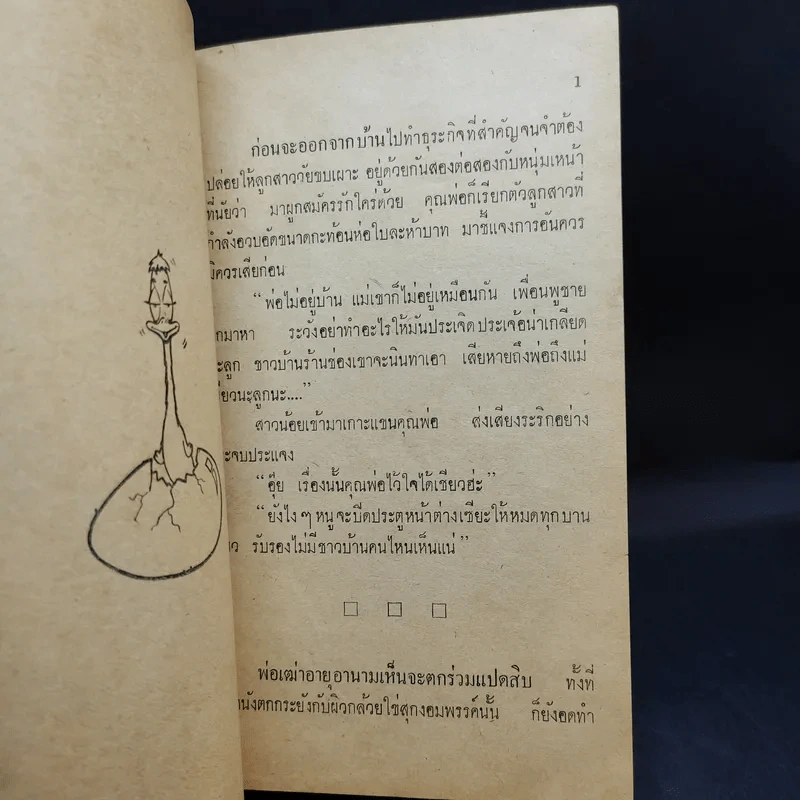 1
ก่อนจะออกจากบ้านไปทำธุระกิจที่สำคัญจนจำต้อง
ปล่อยให้ลูกสาววัยขบเผาะ อยู่ด้วยกันสองต่อสองกับหนุ่มเหน้า
ที่นัยว่า มาผูกสมัครรักใคร่ด้วย คุณพ่อก็เรียกตัวลูกสาวที่
กำลังอวบอัดขนาดกะท้อนห่อใบละห้าบาท มาชี้แจงการอันควร
มิควรเสียก่อน
“พ่อไม่อยู่บ้าน แม่เขาก็ไม่อยู่เหมือนกัน เพื่อนพูชาย
มาหา ระวังอย่าทำอะไรให้มันประเจิดประเจ้อน่าเกลียด
ะลูก ชาวบ้านร้านช่องเขาจะนินทาเอา เสียหายถึงพ่อถึงแม่
ชียวนะลูกนะ....”
สาวน้อยเข้ามาเกาะแขนคุณพ่อ ส่งเสียงระริกอย่าง
ะจบประแจง
“อุ๊ย เรื่องนั้นคุณพ่อไว้ใจได้เชียวฮ่ะ”
“ยังไงๆหนูจะปิดประตูหน้าต่างเซียะให้หมดทุกบาน
รับรองไม่มีชาวบ้านคนไหนเห็นแน่”
พ่อเฒ่าอายุอานามเห็นจะตกร่วมแปดสิบ ทั้งที่
นังตกกระยังกับผิวกล้วยไข่สุกงอมพรรค์นั้น ก็ยังอดทำ